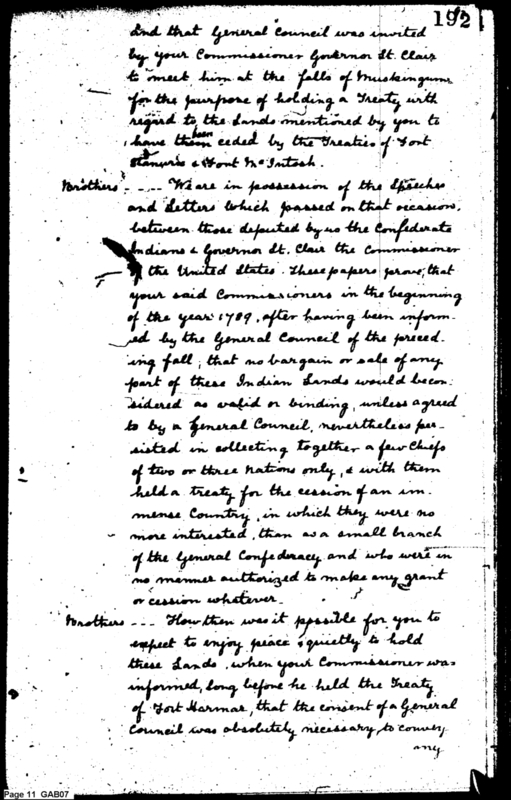 192
And that General Council was invited
by your Commissioner Governor St. Clair
to meet him at the falls of Muskingum
for the purpose of holding a Treaty with
regard to the Lands mentioned by you to
have been ceded by the Treaties of Fort
Stanwix & Font McIntosh.
Brothers - - - - We are in possession of the Speeches
and Letters which passed on that occasion,
between those deputed by us the Confederate
Indians & Governor St. Clair the Commissioner
of the United States. These papers prove, that
your said Commissioners in the beginning
of the year 1789, after having been inform-
ed by the General Council of the preced-
ing fall, that no bargain or sale of any
part of these Indian Lands would be con-
sidered as valid or binding, unless agreed
to by a General Council, nevertheless per-
sisted in collecting together a few Chiefs
of two or three Nations only, & with them
held a treaty for the cession of an im-
mense Country, in which they were no
more interested, than as a small branch
of the General Confederacy and who were in
no manner authorized to make any grant
or cession whatever.
Brothers - - - - How then was it possible for you to
expect to enjoy peace & quietly to hold
these Lands, when your Commissioner was
informed, long before he held the Treaty
of Fort Harmar, that the consent of a General
Council was absolutely necessary to convey
any
Page 11 GAB07